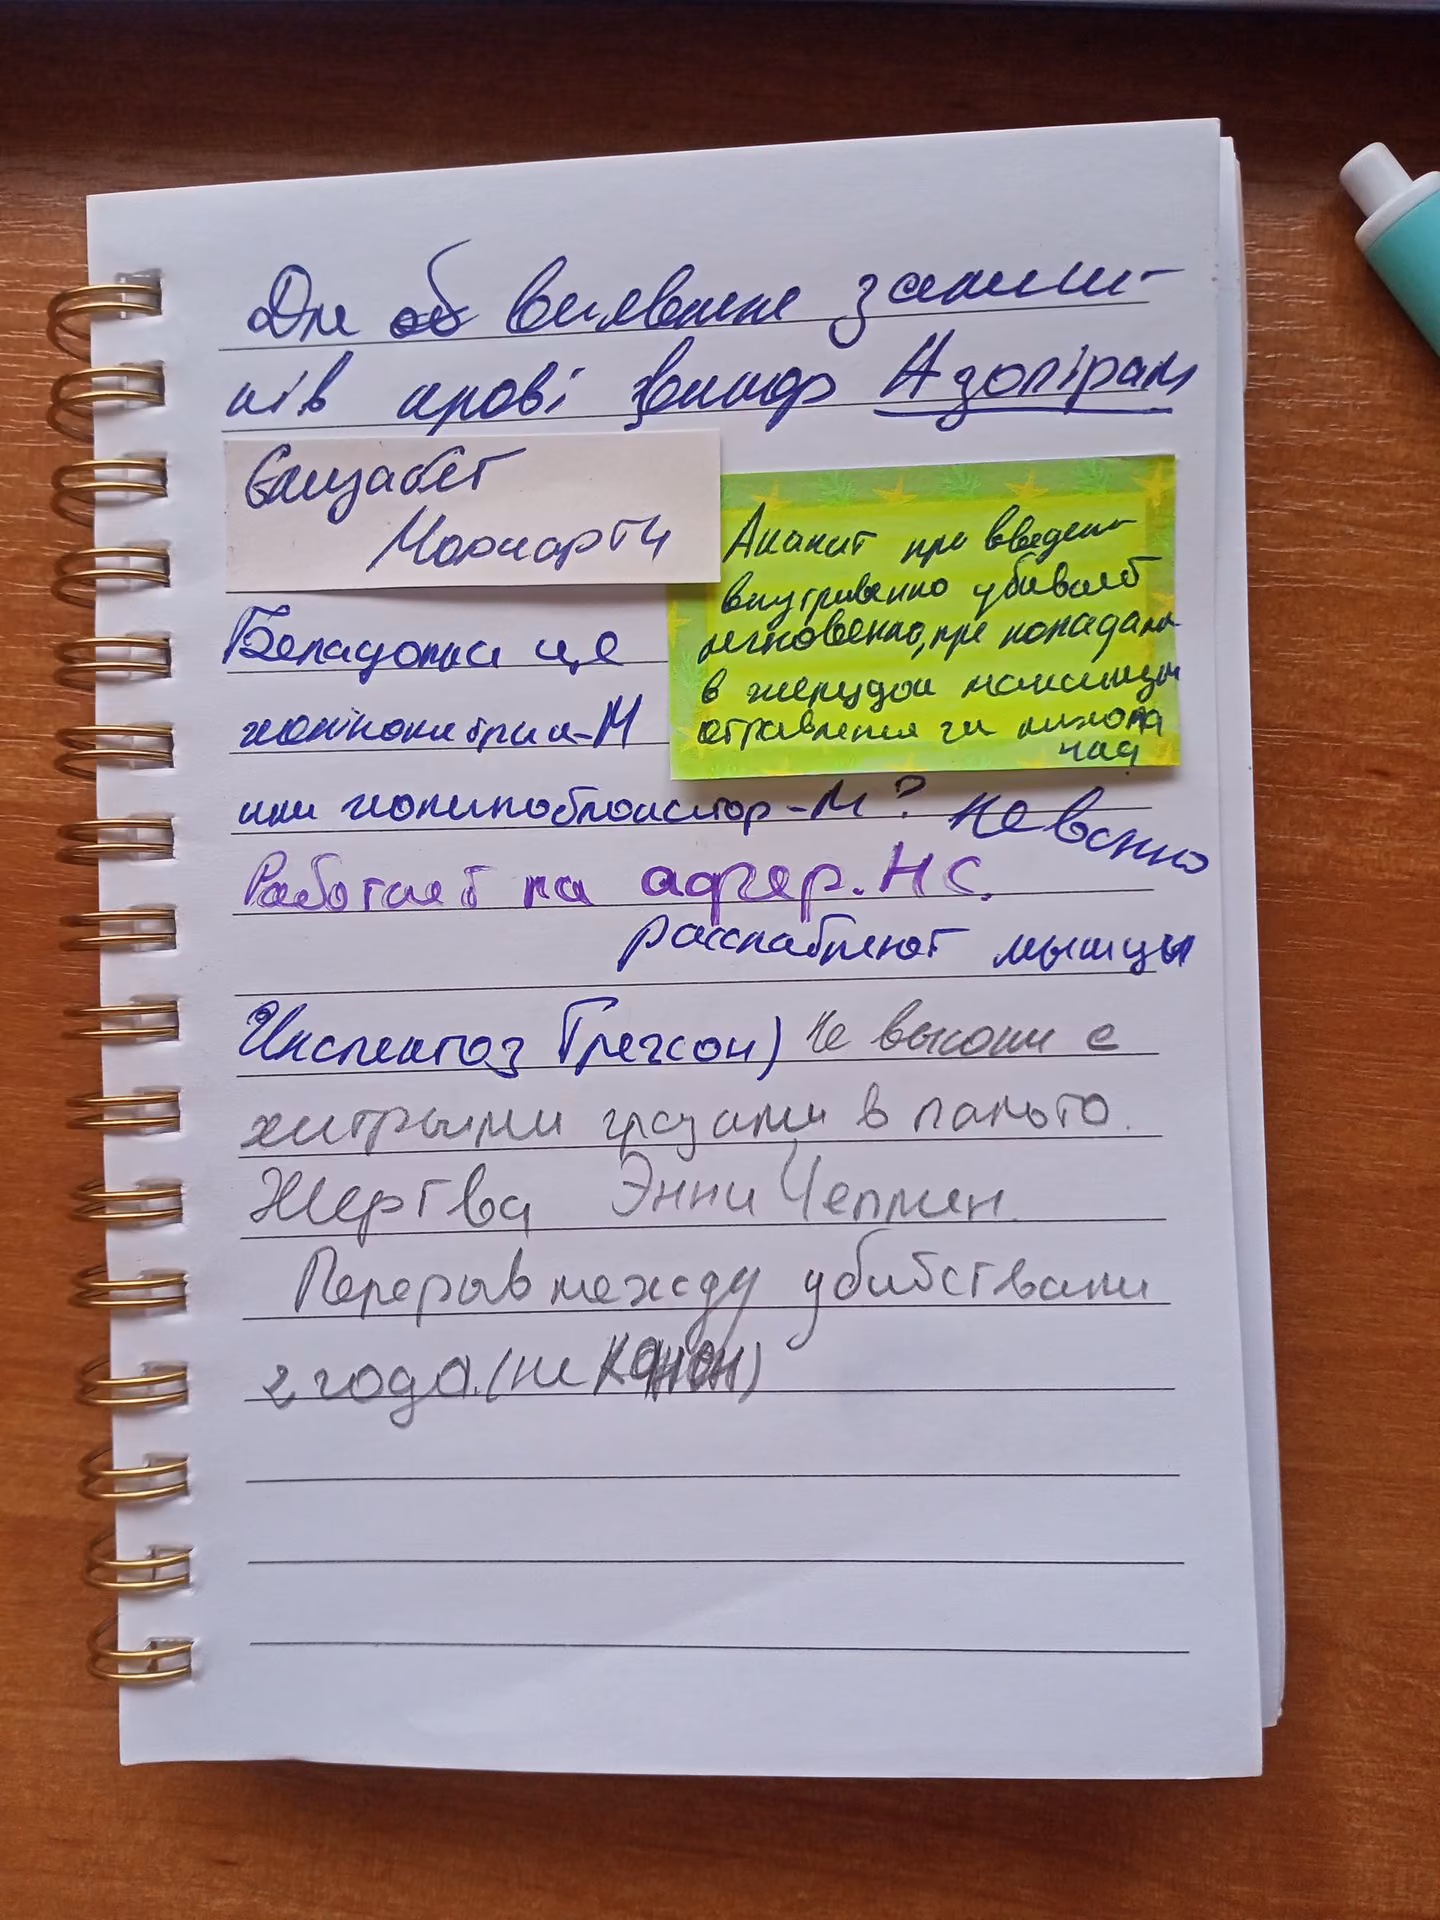 Для об виявлення залиш-
ків крові Азопірам
Елизабет
Мориарти
Аконит при введен
внутривенно убивает
мгновенно, при попадании
в желудок
отравления
час
Беладонна це
холіноміметрик-М
или холиноблокатор-М? Не важно
Работает на аффер. НС.
расслабляют мышцы
Инспектор Грегсон) Не высокий с
хитрыми глазами в пальто.
Жертва Энни Чепмен.
Перерыв между убийствами
2 года. (не канон)